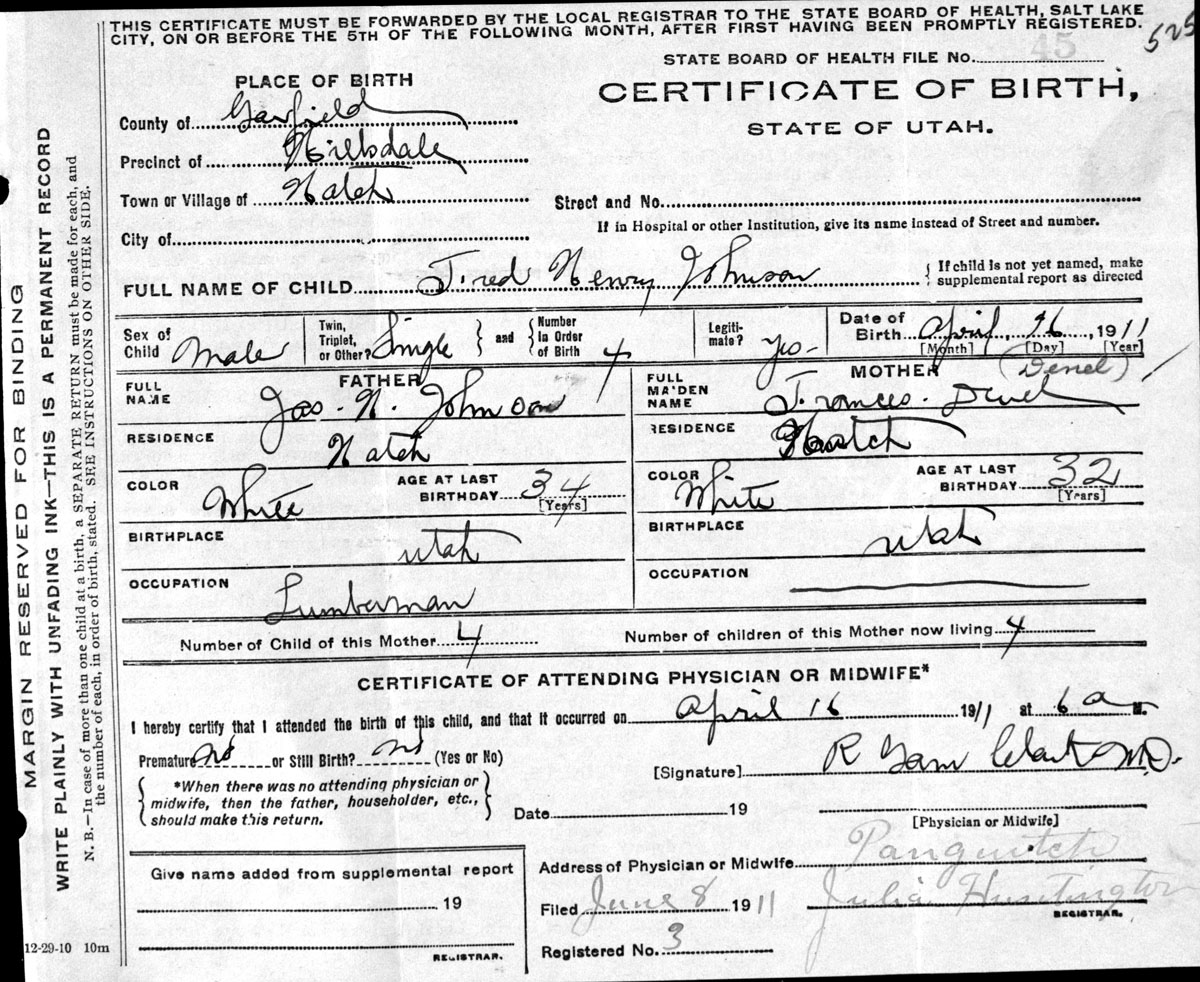 THIS CERTIFICATE MUST BE FORWARDED BY THE LOCAL REGISTRAR TO THE STATE BOARD OF HEALTH, SALT LAKE
CITY, ON OR BEFORE THE 5TH OF THE FOLLOWING MONTH, AFTER FIRST HAVING BEEN PROMPTLY REGISTERED.
525
45
STATE BOARD OF HEALTH FILE No.
PLACE OF BIRTH
CERTIFICATE OF BIRTH,
STATE OF UTAH.
County of Garfield
Precinct of Hillsdale
Town or Village of Hatch
Street and No.
City of
If in Hospital or other Institution, give its name instead of Street and number.
FULL NAME OF CHILD Fred Henry Johnson
If child is not yet named, make
supplemental report as directed
Sex of Child Male
Twin, Triplet, or Other? Single
and Number in Order of Birth 4
Legitimate? Yes
Date of Birth April 16, 1911
[Month] [Day] [Year]
FATHER
FULL NAME Jas. H. Johnson
RESIDENCE Hatch
COLOR White
AGE AT LAST BIRTHDAY 34
[Years]
BIRTHPLACE Utah
OCCUPATION Lumberman
MOTHER (Deuel)
FULL MAIDEN NAME Frances Deuel
RESIDENCE Hatch
COLOR White
AGE AT LAST BIRTHDAY 32
[Years]
BIRTHPLACE Utah
OCCUPATION
Number of Child of this Mother 4 Number of children of this Mother now living 4
CERTIFICATE OF ATTENDING PHYSICIAN OR MIDWIFE*
I hereby certify that I attended the birth of this child, and that it occurred on April 16 1911 at 6 a M.
Premature No or Still Birth? No (Yes or No)
[Signature] R Garn Clark M.D.
*When there was no attending physician or
midwife, then the father, householder, etc.,
should make this return.
Date 19
[Physician or Midwife]
Address of Physician or Midwife Panguitch
Give name added from supplemental report
19
REGISTRAR.
Filed June 8 1911 Julia Huntington
REGISTRAR.
Registered No. 3
12-29-10 10m
MARGIN RESERVED FOR BINDING
WRITE PLAINLY WITH UNFADING INK—THIS IS A PERMANENT RECORD
N. B.—In case of more than one child at a birth, a SEPARATE RETURN must be made for each, and
the number of each, in order of birth, stated. SEE INSTRUCTIONS ON OTHER SIDE.